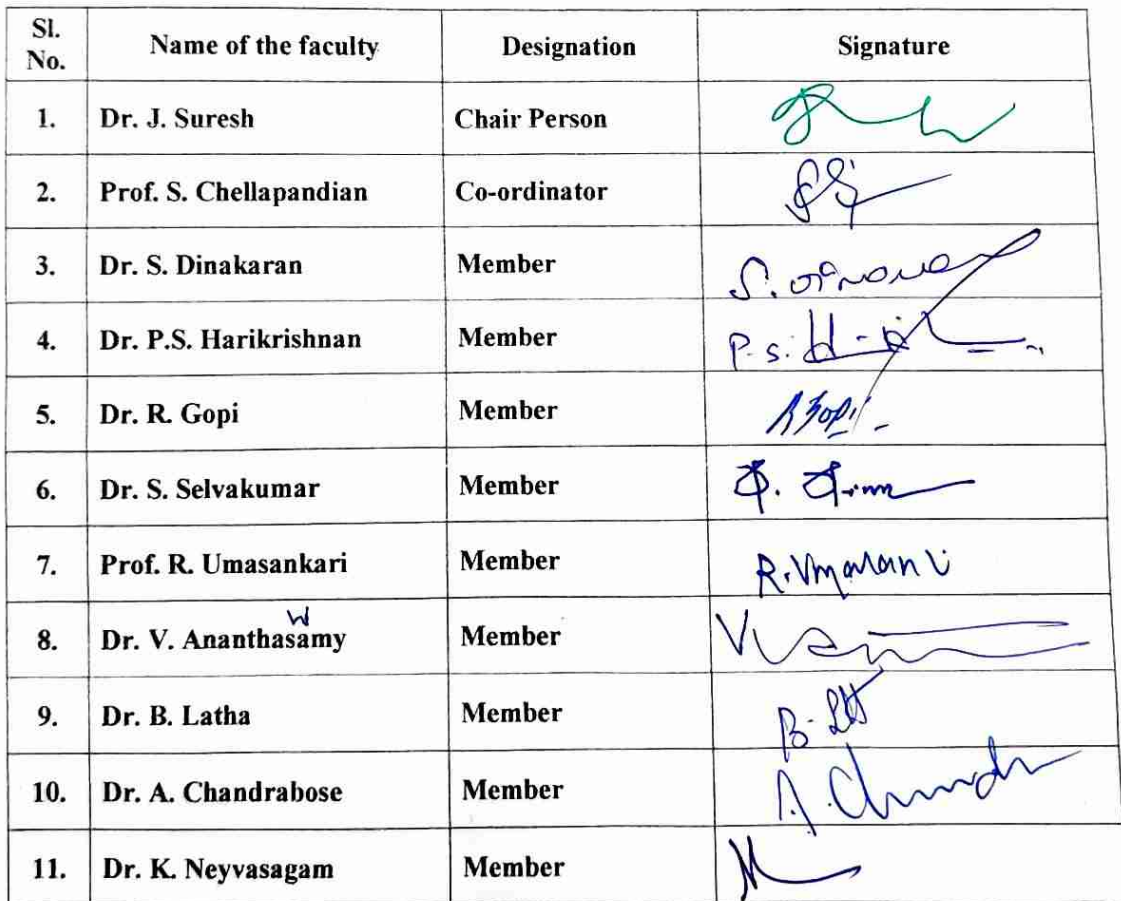 Sl. No. Name of the faculty Designation Signature
1. Dr. J. Suresh Chair Person
2. Prof. S. Chellapandian Co-ordinator
3. Dr. S. Dinakaran Member
4. Dr. P.S. Harikrishnan Member P.S.
5. Dr. R. Gopi Member
6. Dr. S. Selvakumar Member
7. Prof. R. Umasankari Member
w
8. Dr. V. Ananthasamy Member
9. Dr. B. Latha Member
10. Dr. A. Chandrabose Member
11. Dr. K. Neyvasagam Member